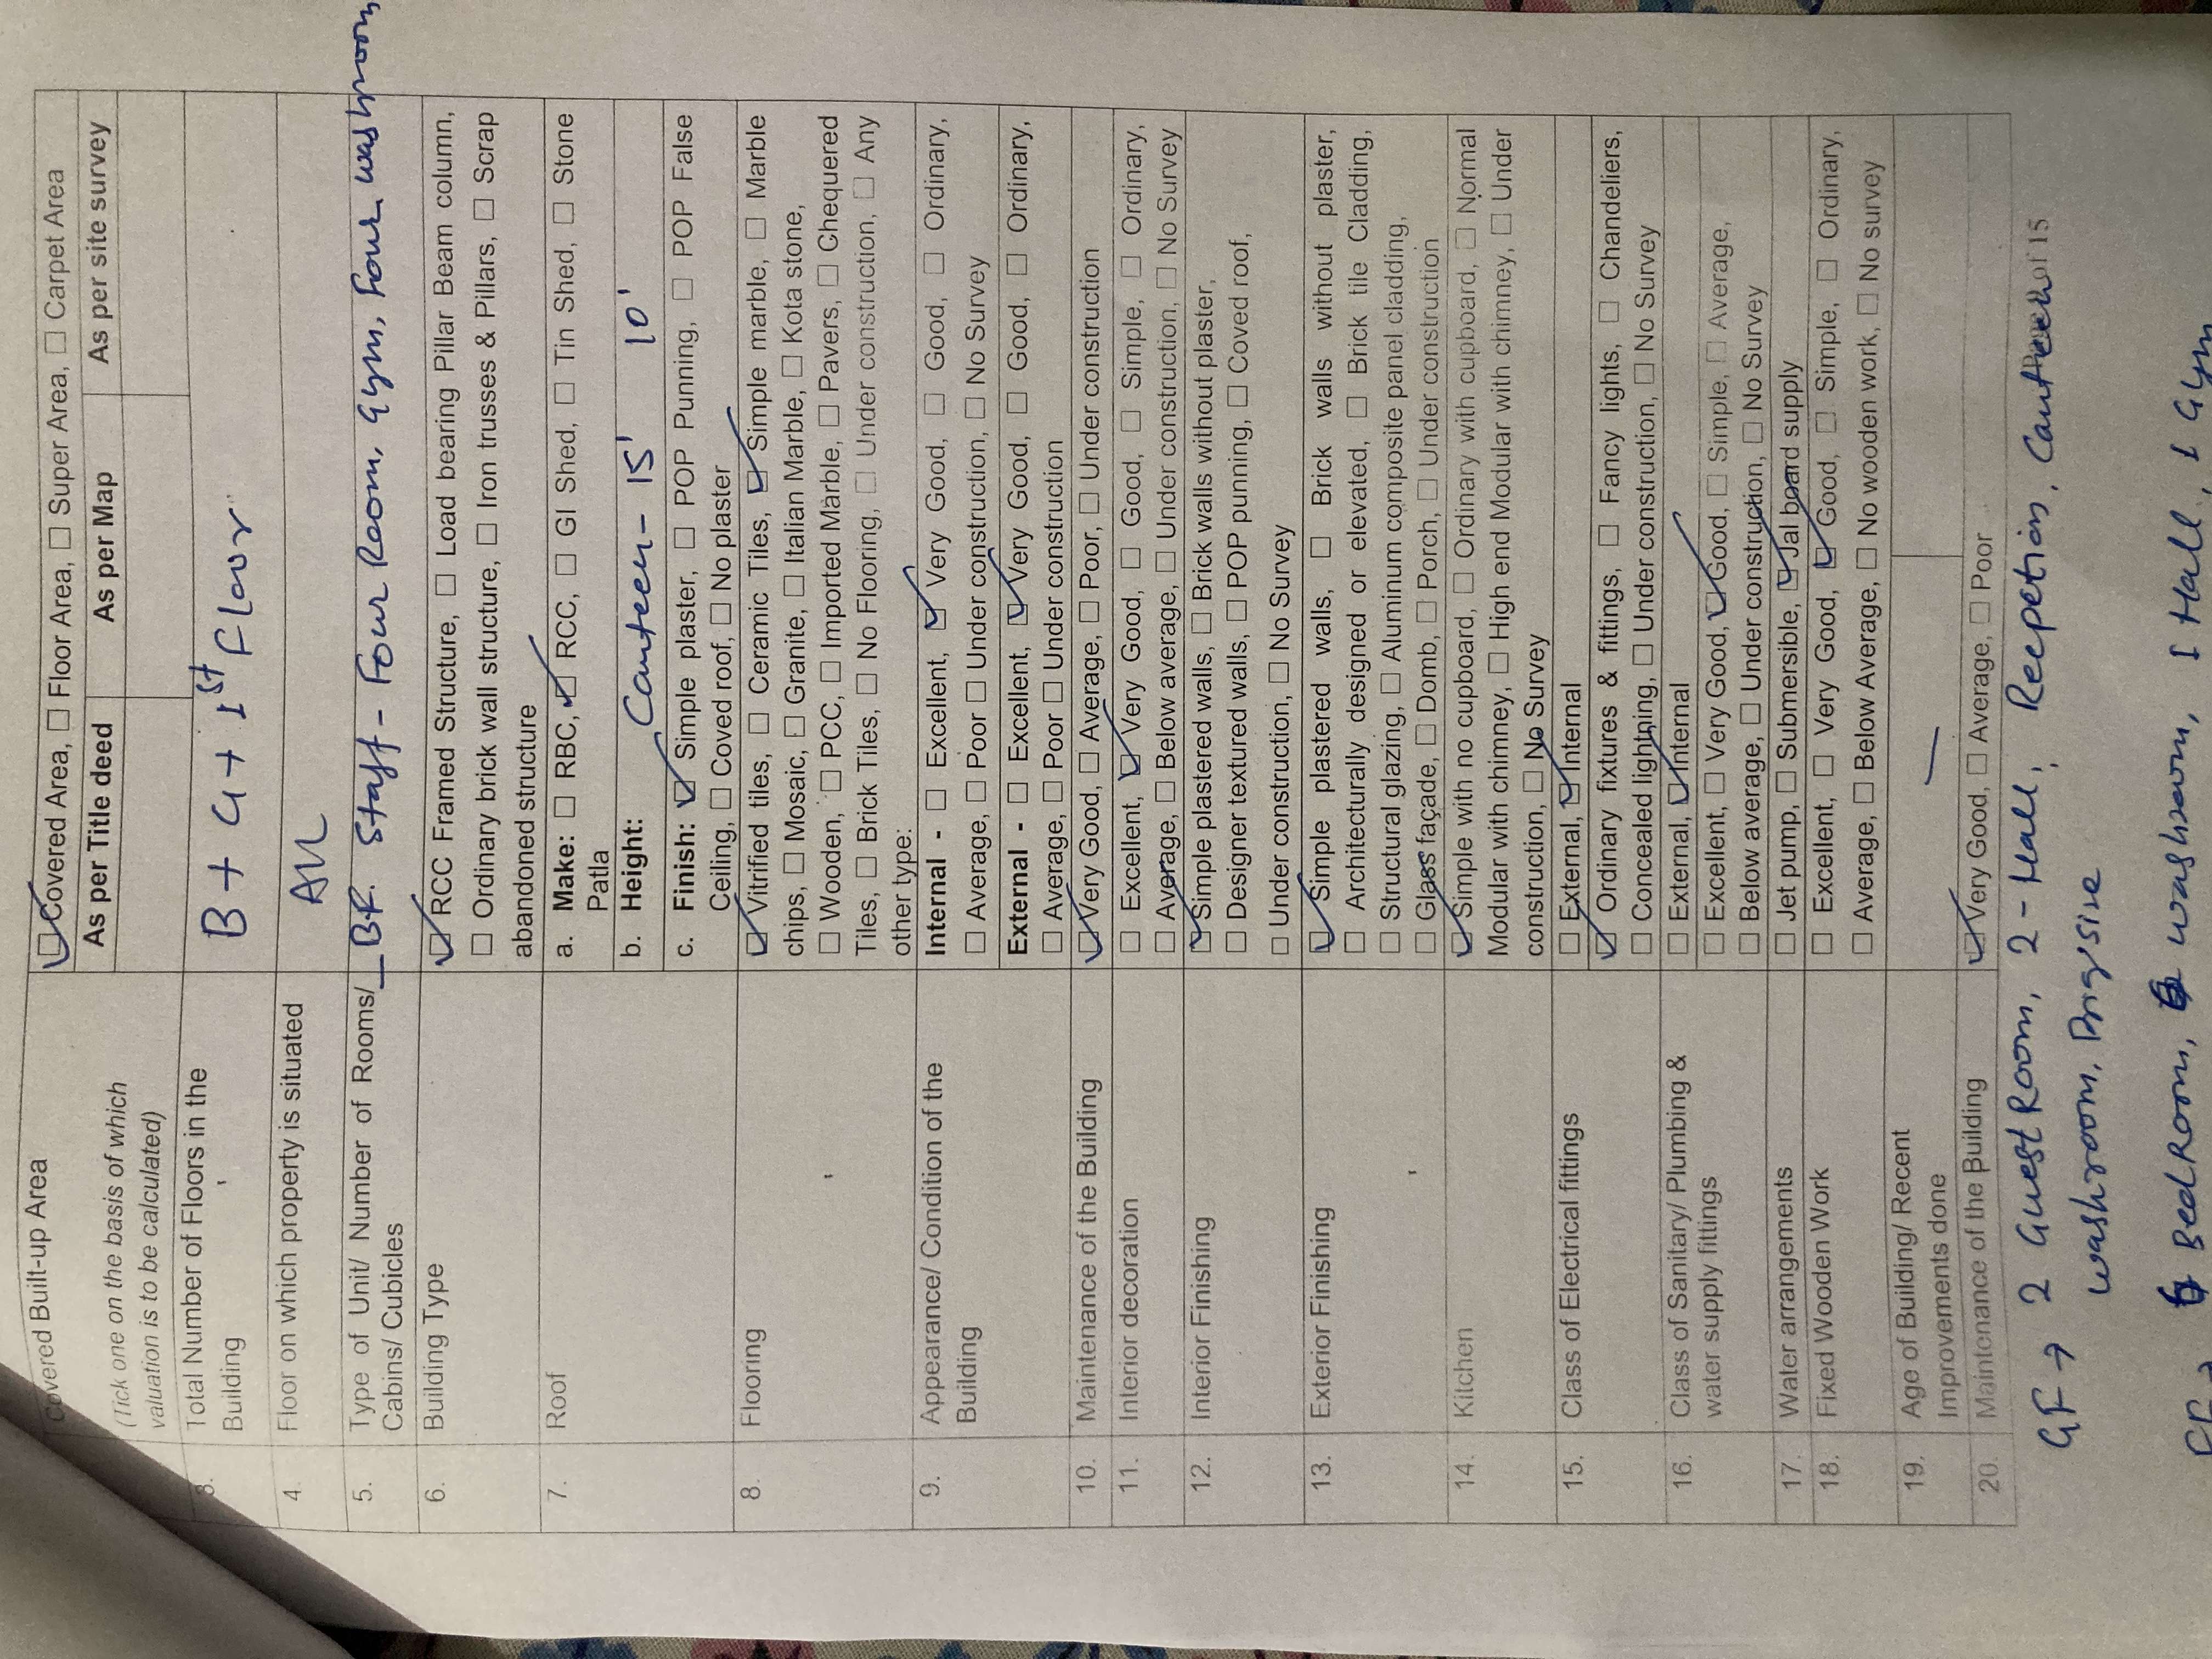 Covered Built-up Area
☑ Covered Area, ☐ Floor Area, ☐ Super Area, ☐ Carpet Area
(Tick one on the basis of which
valuation is to be calculated)
As per Title deed As per Map As per site survey
3. Total Number of Floors in the
Building
B + G + 1st Floor
4. Floor on which property is situated
All
5. Type of Unit/ Number of Rooms/
Cabins/ Cubicles
BF. Staff - Four Room, Gym, Four washroom
6. Building Type
☑ RCC Framed Structure, ☐ Load bearing Pillar Beam column,
☐ Ordinary brick wall structure, ☐ Iron trusses & Pillars, ☐ Scrap
abandoned structure
7. Roof
a. Make: ☐ RBC, ☑ RCC, ☐ GI Shed, ☐ Tin Shed, ☐ Stone
Patla
b. Height: Canteen - 15' 10'
c. Finish: ☑ Simple plaster, ☐ POP Punning, ☐ POP False
Ceiling, ☐ Coved roof, ☐ No plaster
8. Flooring
☑ Vitrified tiles, ☐ Ceramic Tiles, ☑ Simple marble, ☐ Marble
chips, ☐ Mosaic, ☐ Granite, ☐ Italian Marble, ☐ Kota stone,
☐ Wooden, ☐ PCC, ☐ Imported Marble, ☐ Pavers, ☐ Chequered
Tiles, ☐ Brick Tiles, ☐ No Flooring, ☐ Under construction, ☐ Any
other type:
9. Appearance/ Condition of the
Building
Internal - ☐ Excellent, ☑ Very Good, ☐ Good, ☐ Ordinary,
☐ Average, ☐ Poor ☐ Under construction, ☐ No Survey
External - ☐ Excellent, ☑ Very Good, ☐ Good, ☐ Ordinary,
☐ Average, ☐ Poor ☐ Under construction
10. Maintenance of the Building
☑ Very Good, ☐ Average, ☐ Poor, ☐ Under construction
11. Interior decoration
☐ Excellent, ☑ Very Good, ☐ Good, ☐ Simple, ☐ Ordinary,
☐ Average, ☐ Below average, ☐ Under construction, ☐ No Survey
12. Interior Finishing
☑ Simple plastered walls, ☐ Brick walls without plaster,
☐ Designer textured walls, ☐ POP punning, ☐ Coved roof,
☐ Under construction, ☐ No Survey
13. Exterior Finishing
☑ Simple plastered walls, ☐ Brick walls without plaster,
☐ Architecturally designed or elevated, ☐ Brick tile Cladding,
☐ Structural glazing, ☐ Aluminum composite panel cladding,
☐ Glass façade, ☐ Domb, ☐ Porch, ☐ Under construction
14. Kitchen
☑ Simple with no cupboard, ☐ Ordinary with cupboard, ☐ Normal
Modular with chimney, ☐ High end Modular with chimney, ☐ Under
construction, ☐ No Survey
15. Class of Electrical fittings
☐ External, ☑ Internal
☑ Ordinary fixtures & fittings, ☐ Fancy lights, ☐ Chandeliers,
☐ Concealed lightning, ☐ Under construction, ☐ No Survey
16. Class of Sanitary/ Plumbing &
water supply fittings
☐ External, ☑ Internal
☐ Excellent, ☐ Very Good, ☑ Good, ☐ Simple, ☐ Average,
☐ Below average, ☐ Under construction, ☐ No Survey
17. Water arrangements
☐ Jet pump, ☐ Submersible, ☑ Jal board supply
18. Fixed Wooden Work
☐ Excellent, ☐ Very Good, ☑ Good, ☐ Simple, ☐ Ordinary,
☐ Average, ☐ Below Average, ☐ No wooden work, ☐ No survey
19. Age of Building/ Recent
Improvements done
—
20. Maintenance of the Building
☑ Very Good, ☐ Average, ☐ Poor
of 15
GF → 2 Guest Room, 2 - Hall, Reception,
washroom,
FF → Bed Room, washroom, 1 Hall, 1 Gym